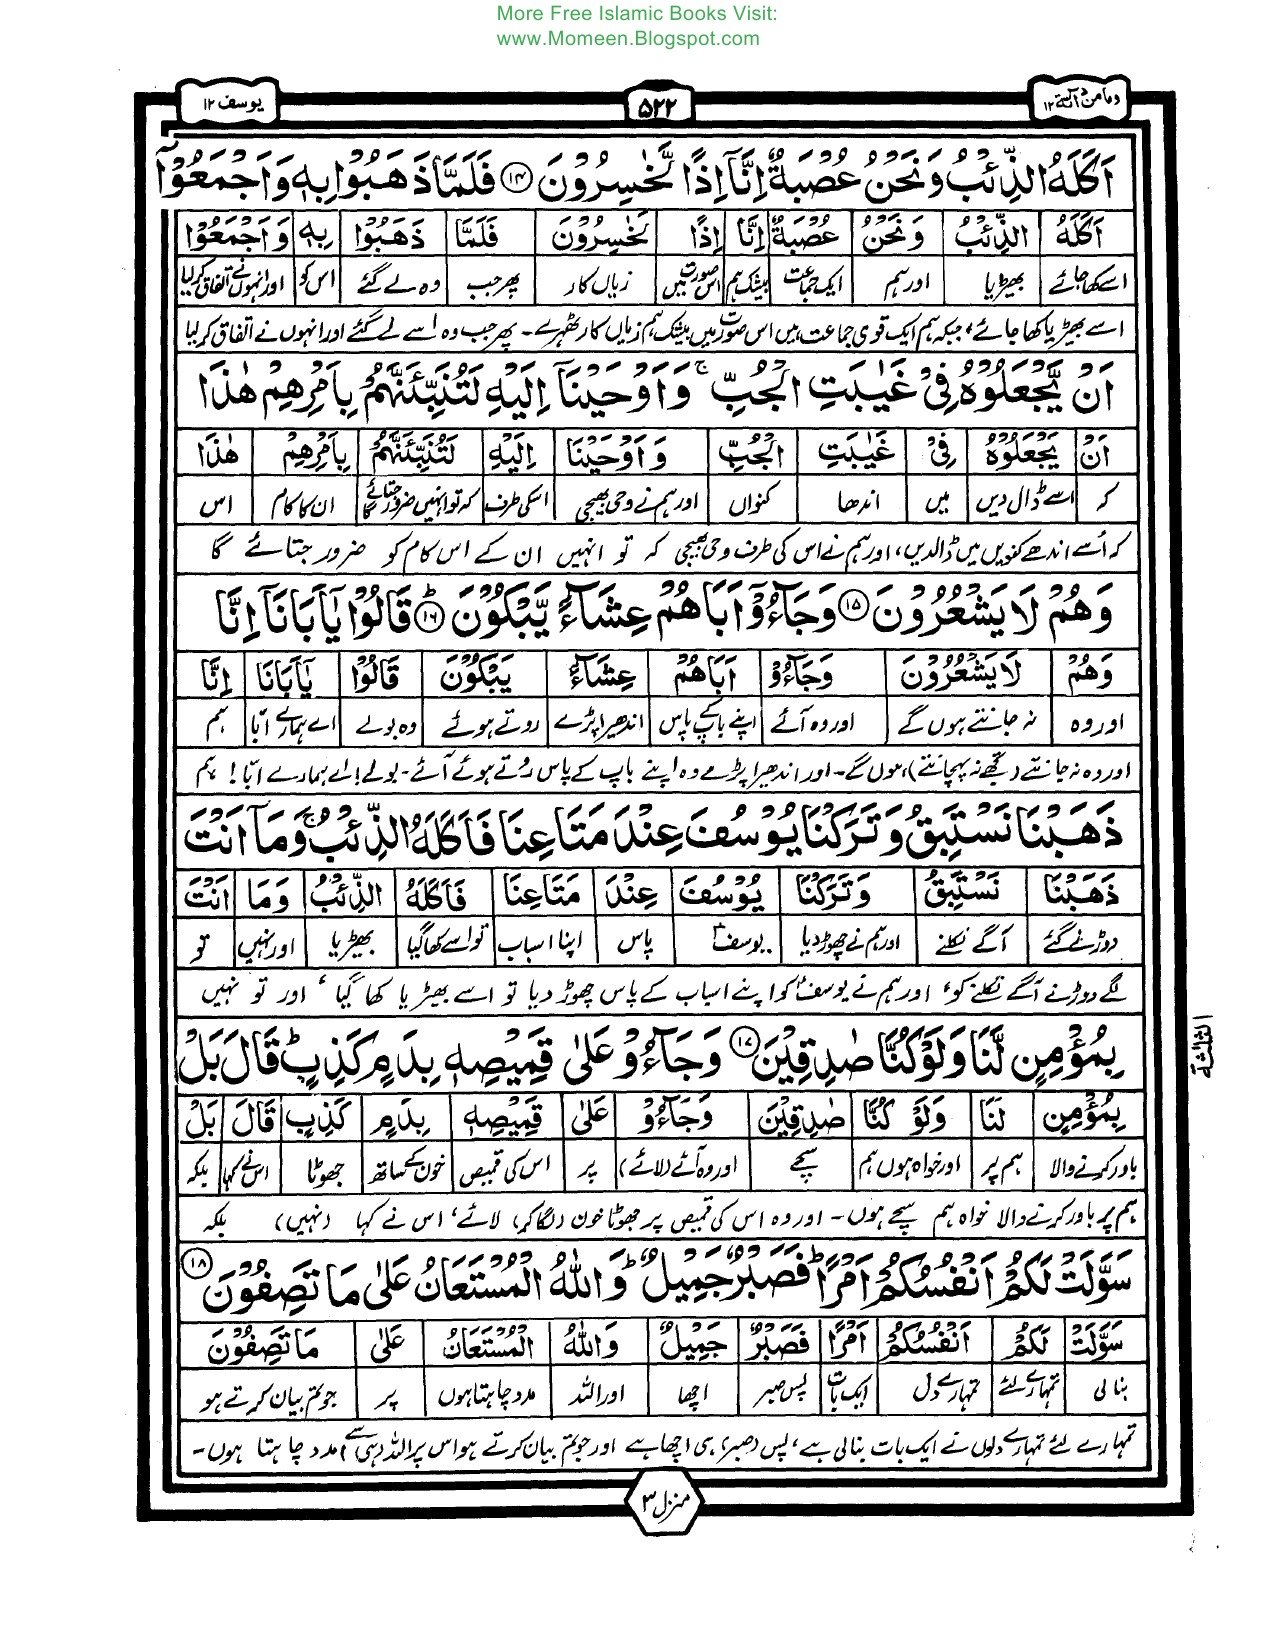 More Free Islamic Books Visit:
www.Momeen.Blogspot.com
ومامن دآبة ۱۲
۵۲۲
یوسف ۱۲
اَكَلَهُ الذِّئْبُ وَنَحْنُ عُصْبَةٌ اِنَّاۤ اِذًا لَّخٰسِرُوْنَ ۱۴ فَلَمَّا ذَهَبُوْا بِهٖ وَاَجْمَعُوْۤا
اَكَلَهُ الذِّئْبُ وَنَحْنُ عُصْبَةٌ اِنَّا اِذًا لَّخٰسِرُوْنَ فَلَمَّا ذَهَبُوْا بِهٖ وَاَجْمَعُوْۤا
اسے کھا جائے بھیڑیا اور ہم ایک جماعت بیشک ہم اس صورت میں زیاں کار پھر جب وہ لے گئے اس کو اور انہوں نے اتفاق کر لیا
اسے بھیڑیا کھا جائے، جبکہ ہم ایک قوی جماعت ہیں اس صورت میں بیشک ہم زیاں کار ٹھہرے۔ پھر جب وہ اسے لے گئے اور انہوں نے اتفاق کر لیا
اَنْ يَّجْعَلُوْهُ فِيْ غَيٰبَتِ الْجُبِّ ۚ وَاَوْحَيْنَاۤ اِلَيْهِ لَتُنَبِّئَنَّهُمْ بِاَمْرِهِمْ هٰذَا
اَنْ يَّجْعَلُوْهُ فِيْ غَيٰبَتِ الْجُبِّ وَاَوْحَيْنَا اِلَيْهِ لَتُنَبِّئَنَّهُمْ بِاَمْرِهِمْ هٰذَا
کہ اسے ڈال دیں میں اندھا کنواں اور ہم نے وحی بھیجی اسکی طرف کہ تو انہیں ضرور جتائے گا ان کا کام اس
کہ اُسے اندھے کنویں میں ڈالدیں، اور ہم نے اس کی طرف وحی بھیجی کہ تو انہیں ان کے اس کام کو ضرور جتائے گا
وَهُمْ لَا يَشْعُرُوْنَ ۱۵ وَجَآءُوْۤ اَبَاهُمْ عِشَآءً يَّبْكُوْنَ ؕ ۱۶ قَالُوْا يٰۤاَبَانَاۤ اِنَّا
وَهُمْ لَا يَشْعُرُوْنَ وَجَآءُوْ اَبَاهُمْ عِشَآءً يَّبْكُوْنَ قَالُوْا يٰۤاَبَانَا اِنَّا
اور وہ نہ جانتے ہوں گے اور وہ آئے اپنے باپ کے پاس اندھیرا پڑے روتے ہوئے وہ بولے اے ہمارے ابّا ہم
اور وہ نہ جانتے (تجھے نہ پہچانتے) ہوں گے۔ اور اندھیرا پڑے وہ اپنے باپ کے پاس روتے ہوئے آئے۔ بولے! اے ہمارے ابّا! ہم
ذَهَبْنَا نَسْتَبِقُ وَتَرَكْنَا يُوْسُفَ عِنْدَ مَتَاعِنَا فَاَكَلَهُ الذِّئْبُ ۚ وَمَاۤ اَنْتَ
ذَهَبْنَا نَسْتَبِقُ وَتَرَكْنَا يُوْسُفَ عِنْدَ مَتَاعِنَا فَاَكَلَهُ الذِّئْبُ وَمَا اَنْتَ
دوڑنے گئے آگے نکلنے اور ہم نے چھوڑ دیا یوسفؑ پاس اپنا اسباب تو اسے کھا گیا بھیڑیا اور نہیں تو
لگے دوڑنے آگے نکلنے کو، اور ہم نے یوسفؑ کو اپنے اسباب کے پاس چھوڑ دیا تو اسے بھیڑیا کھا گیا، اور تو نہیں
الثلثة
بِمُؤْمِنٍ لَّنَا وَلَوْ كُنَّا صٰدِقِيْنَ ۱۷ وَجَآءُوْ عَلٰى قَمِيْصِهٖ بِدَمٍ كَذِبٍ ؕ قَالَ بَلْ
بِمُؤْمِنٍ لَنَا وَلَوْ كُنَّا صٰدِقِيْنَ وَجَآءُوْ عَلٰى قَمِيْصِهٖ بِدَمٍ كَذِبٍ قَالَ بَلْ
باور کرنے والا ہم پر اور خواہ ہوں ہم سچے اور وہ آئے (لائے) پر اس کی قمیص خون کے ساتھ جھوٹا اس نے کہا بلکہ
ہم پر باور کرنے والا خواہ ہم سچے ہوں۔ اور وہ اس کی قمیص پر جھوٹا خون (لگا کر) لائے، اس نے کہا (نہیں) بلکہ
سَوَّلَتْ لَكُمْ اَنْفُسُكُمْ اَمْرًا ؕ فَصَبْرٌ جَمِيْلٌ ؕ وَاللّٰهُ الْمُسْتَعَانُ عَلٰى مَا تَصِفُوْنَ ۱۸
سَوَّلَتْ لَكُمْ اَنْفُسُكُمْ اَمْرًا فَصَبْرٌ جَمِيْلٌ وَاللّٰهُ الْمُسْتَعَانُ عَلٰى مَا تَصِفُوْنَ
بنا لی تمہارے لئے تمہارے دل ایک بات پس صبر اچھا اور اللہ مدد چاہتا ہوں پر جو تم بیان کرتے ہو
تمہارے لئے تمہارے دلوں نے ایک بات بنا لی ہے، پس (صبر) ہی اچھا ہے اور جو تم بیان کرتے ہو اس پر اللہ (ہی سے) مدد چاہتا ہوں۔
منزل ۳